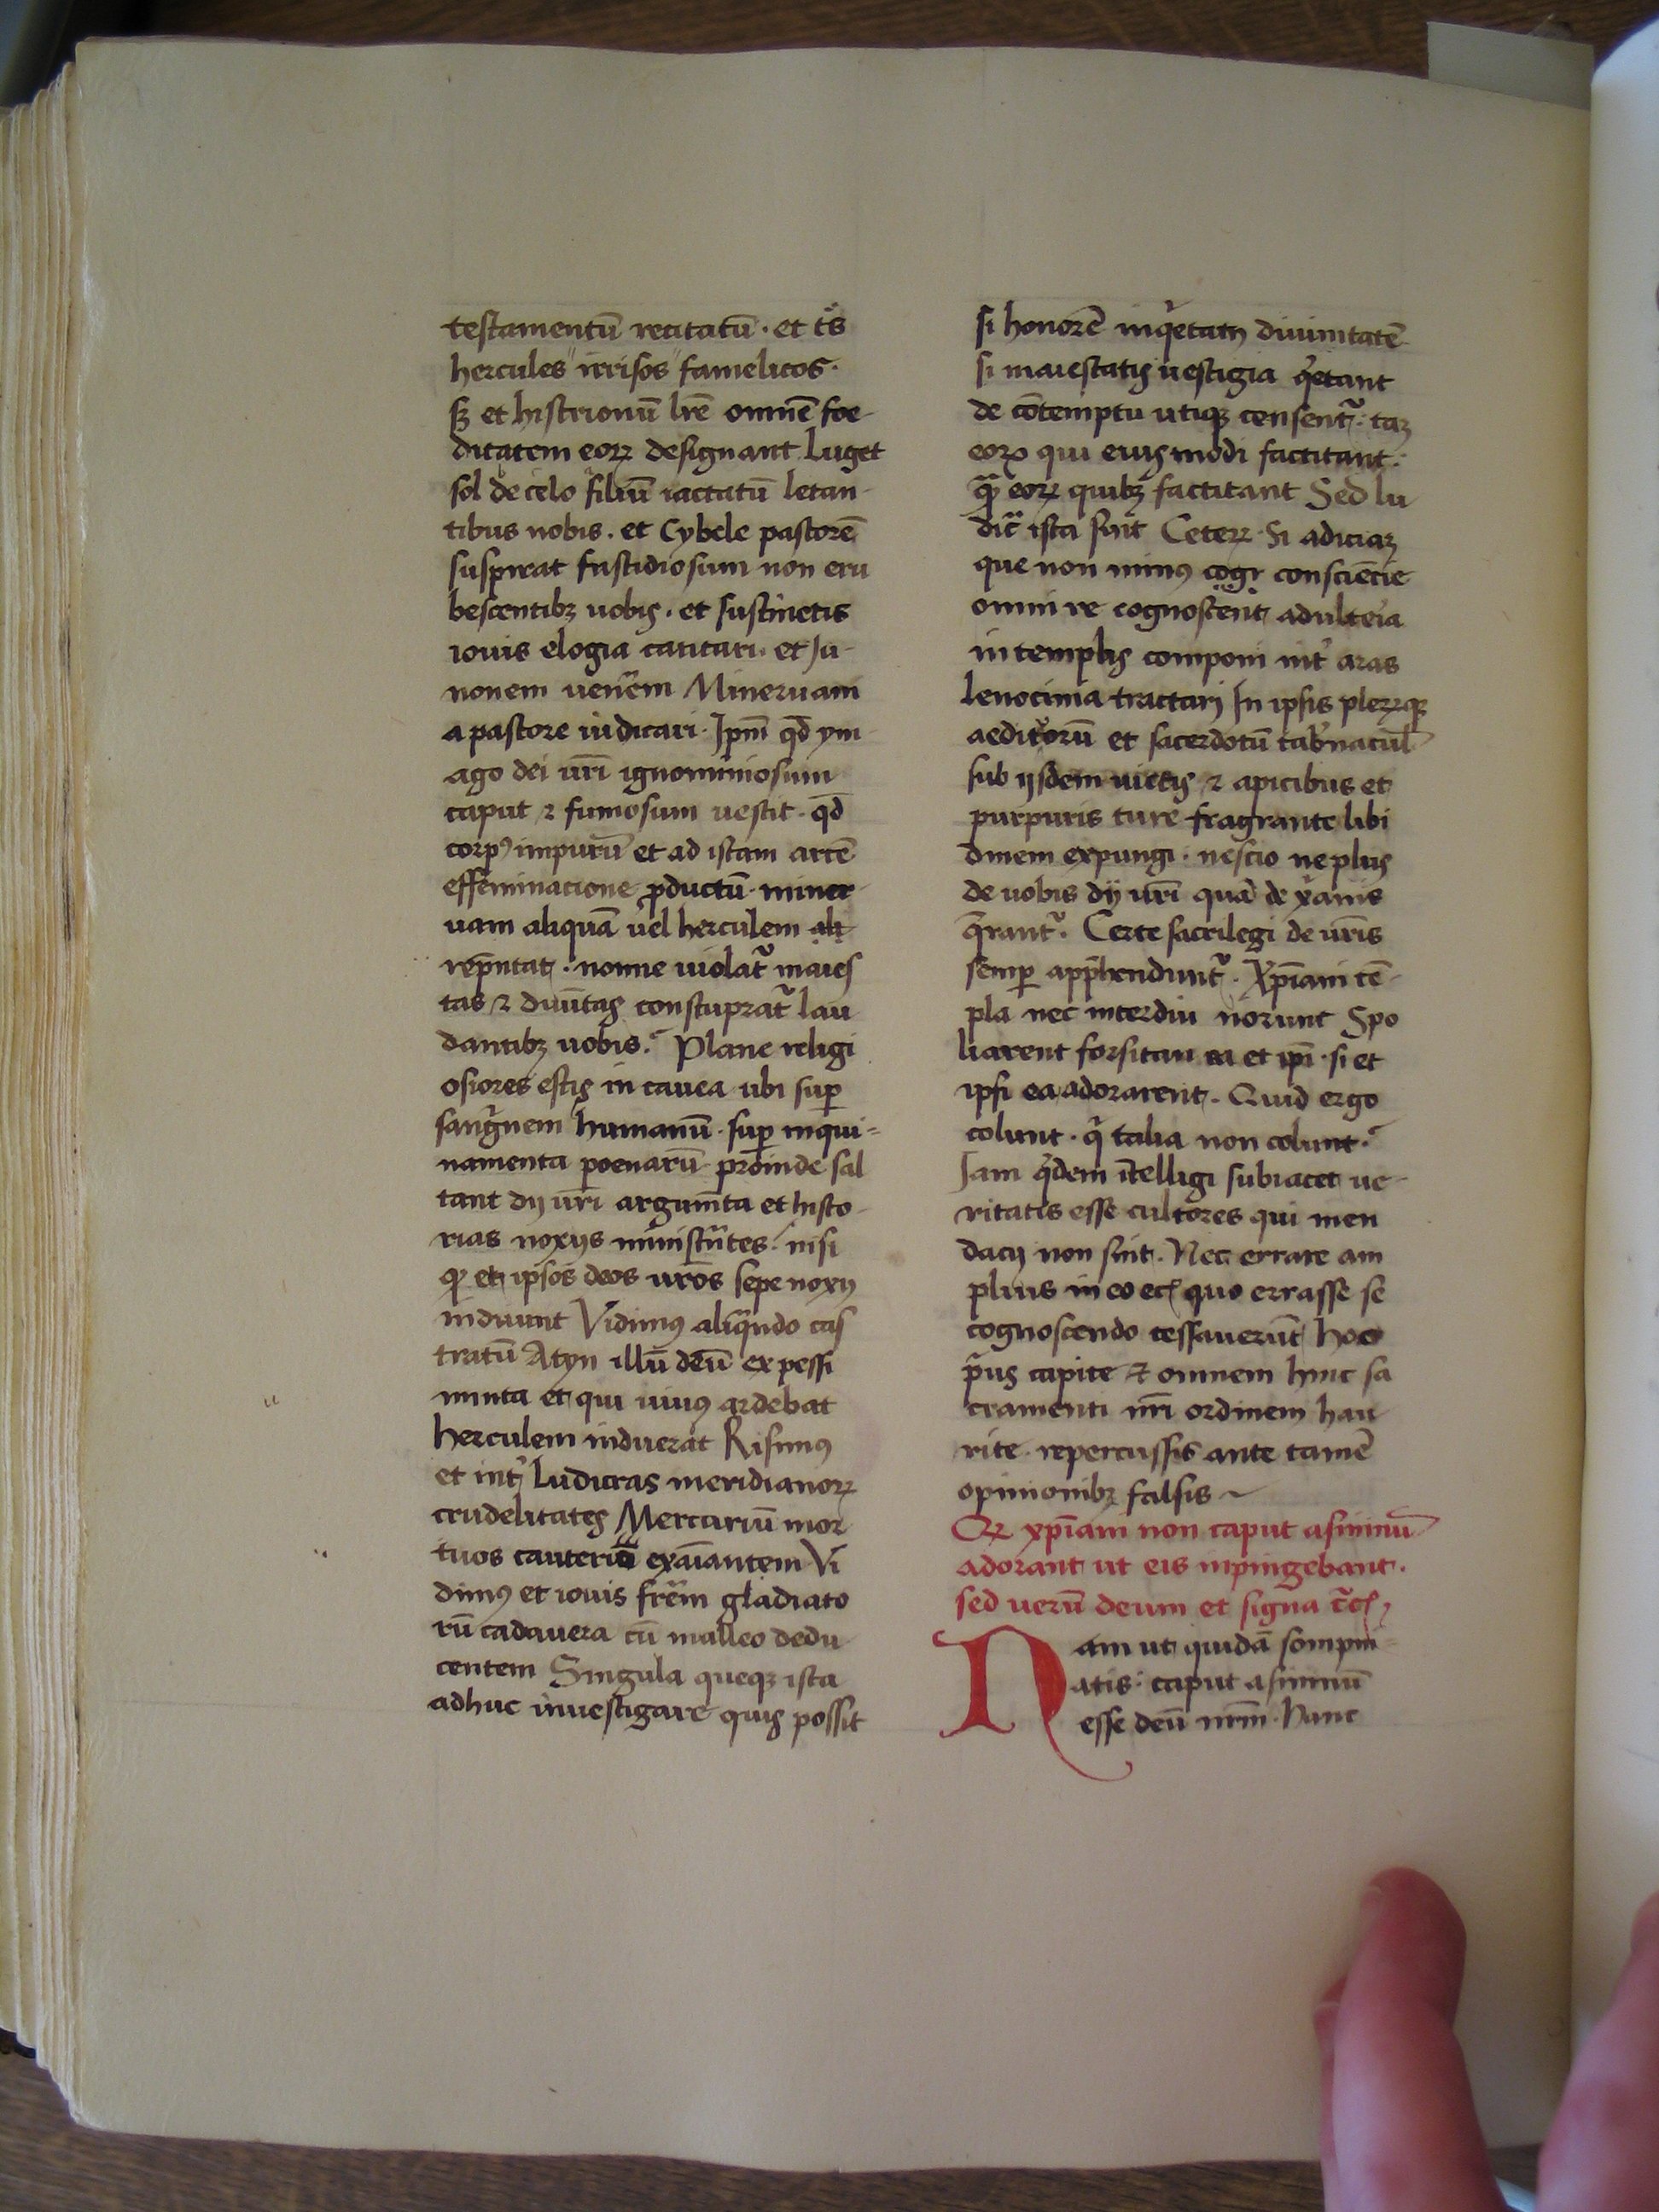 testamentū recitatū · et t̄s
hercules irrisos famelicos ·
sꝫ et histrionū lr̄e omnē foe-
ditatem eorꝝ designant Luget
sol de celo filiū iactatū letan-
tibus nobis · et Cybele pastorē
suspirat fastidiosum non eru
bescentibꝫ uobis · et sustinetis
iouis elogia catitari · et Ju-
nonem uenērem Mineruam
a pastore iudicari · Ipm̄ qd̄ ym-
ago dei ur̄i ignominiosum
caput ⁊ fumosum uestit · qd̄
corpꝰ impurū et ad istam artē
effeminatione ꝓductū · miner-
uam aliquā uel herculem
rep̄ntat · nonne uiolat᷑ maies
tas ⁊ diuītas constuprat᷑ lau
dantibꝫ uobis ? Plane religi
osiores estis in cauea ubi suꝑ
sangͥnem humanū · suꝑ inqui-
namenta poenarū proinde sal
tant dij ur̄i argum̄ta et histo-
rias noxijs ministrātes : nisi
ꝙ et ipsos deos ur̄os sepe noxij
induunt Vidimꝰ aliqᷓndo cas
tratū Atyn illū deū ex pessi
nunta et qui uiuꝰ ardebat
herculem induerat Risimꝰ
et int͛ ludicras meridianorꝝ
crudelitates Mercuriū mor
tuos cauteriō exaīantem Vi
dimꝰ et iouis fr̄em gladiato
rū cadauera cū malleo dedu
centem Singula queqꝫ ista
adhuc inuestigare quis possit
si honorē inqͥetant diuinitatē
si maiestatis uestigia qͥetant
de cōtemptu utiqꝫ censent᷑ · taꝫ
eorꝝ qui euismodi factitant ·
qᷓꝫ eorꝝ quibꝫ factitant Sed lu
dic̄ ista sint Ceterꝝ · Si adiciaꝫ
que non minꝰ cogr consciēcie
omni re cognoscent adulteria
in templis componi int͛ aras
lenocinia tractari In ipsis plerꝝqꝫ
aedituorū et sacerdotū tab͛nacul̄
sub ijsdem uictis ⁊ apicibus et
purpuris ture fragrante libi
dinem expungi · nescio ne plus
de uobis dij ur̄i quā de xānis
qᷓrant᷑ · Certe sacrilegi de ur̄is
semꝑ app̄hendunt᷑ · Xp̄iani tē-
pla nec interdiu norunt Spo
liarent forsitan ea et ip̄i · si et
ipsi ea adorarent · Quid ergo
colunt · qͥ talia non colunt ?
Iam qͥdem ītelligi subiacet ue-
ritatis esse cultores qui men
dacij non sint · Nec errare am
plius in eo ec̄ quo errasse se
cognoscendo cessauerūt hoc
pͥus capite ⁊ omnem hinc sa
cramenti nr̄i ordinem hau
rite · repercussis ante tamē
opinionibꝫ falsis ~
Qꝝ xp̄iani non caput asininū
adorant ut eis inpingebant ·
sed uerū deum et signa c̄c̄
Nam ut quidā sompni-
atis · caput asininū
esse deū nr̄m · Hanc